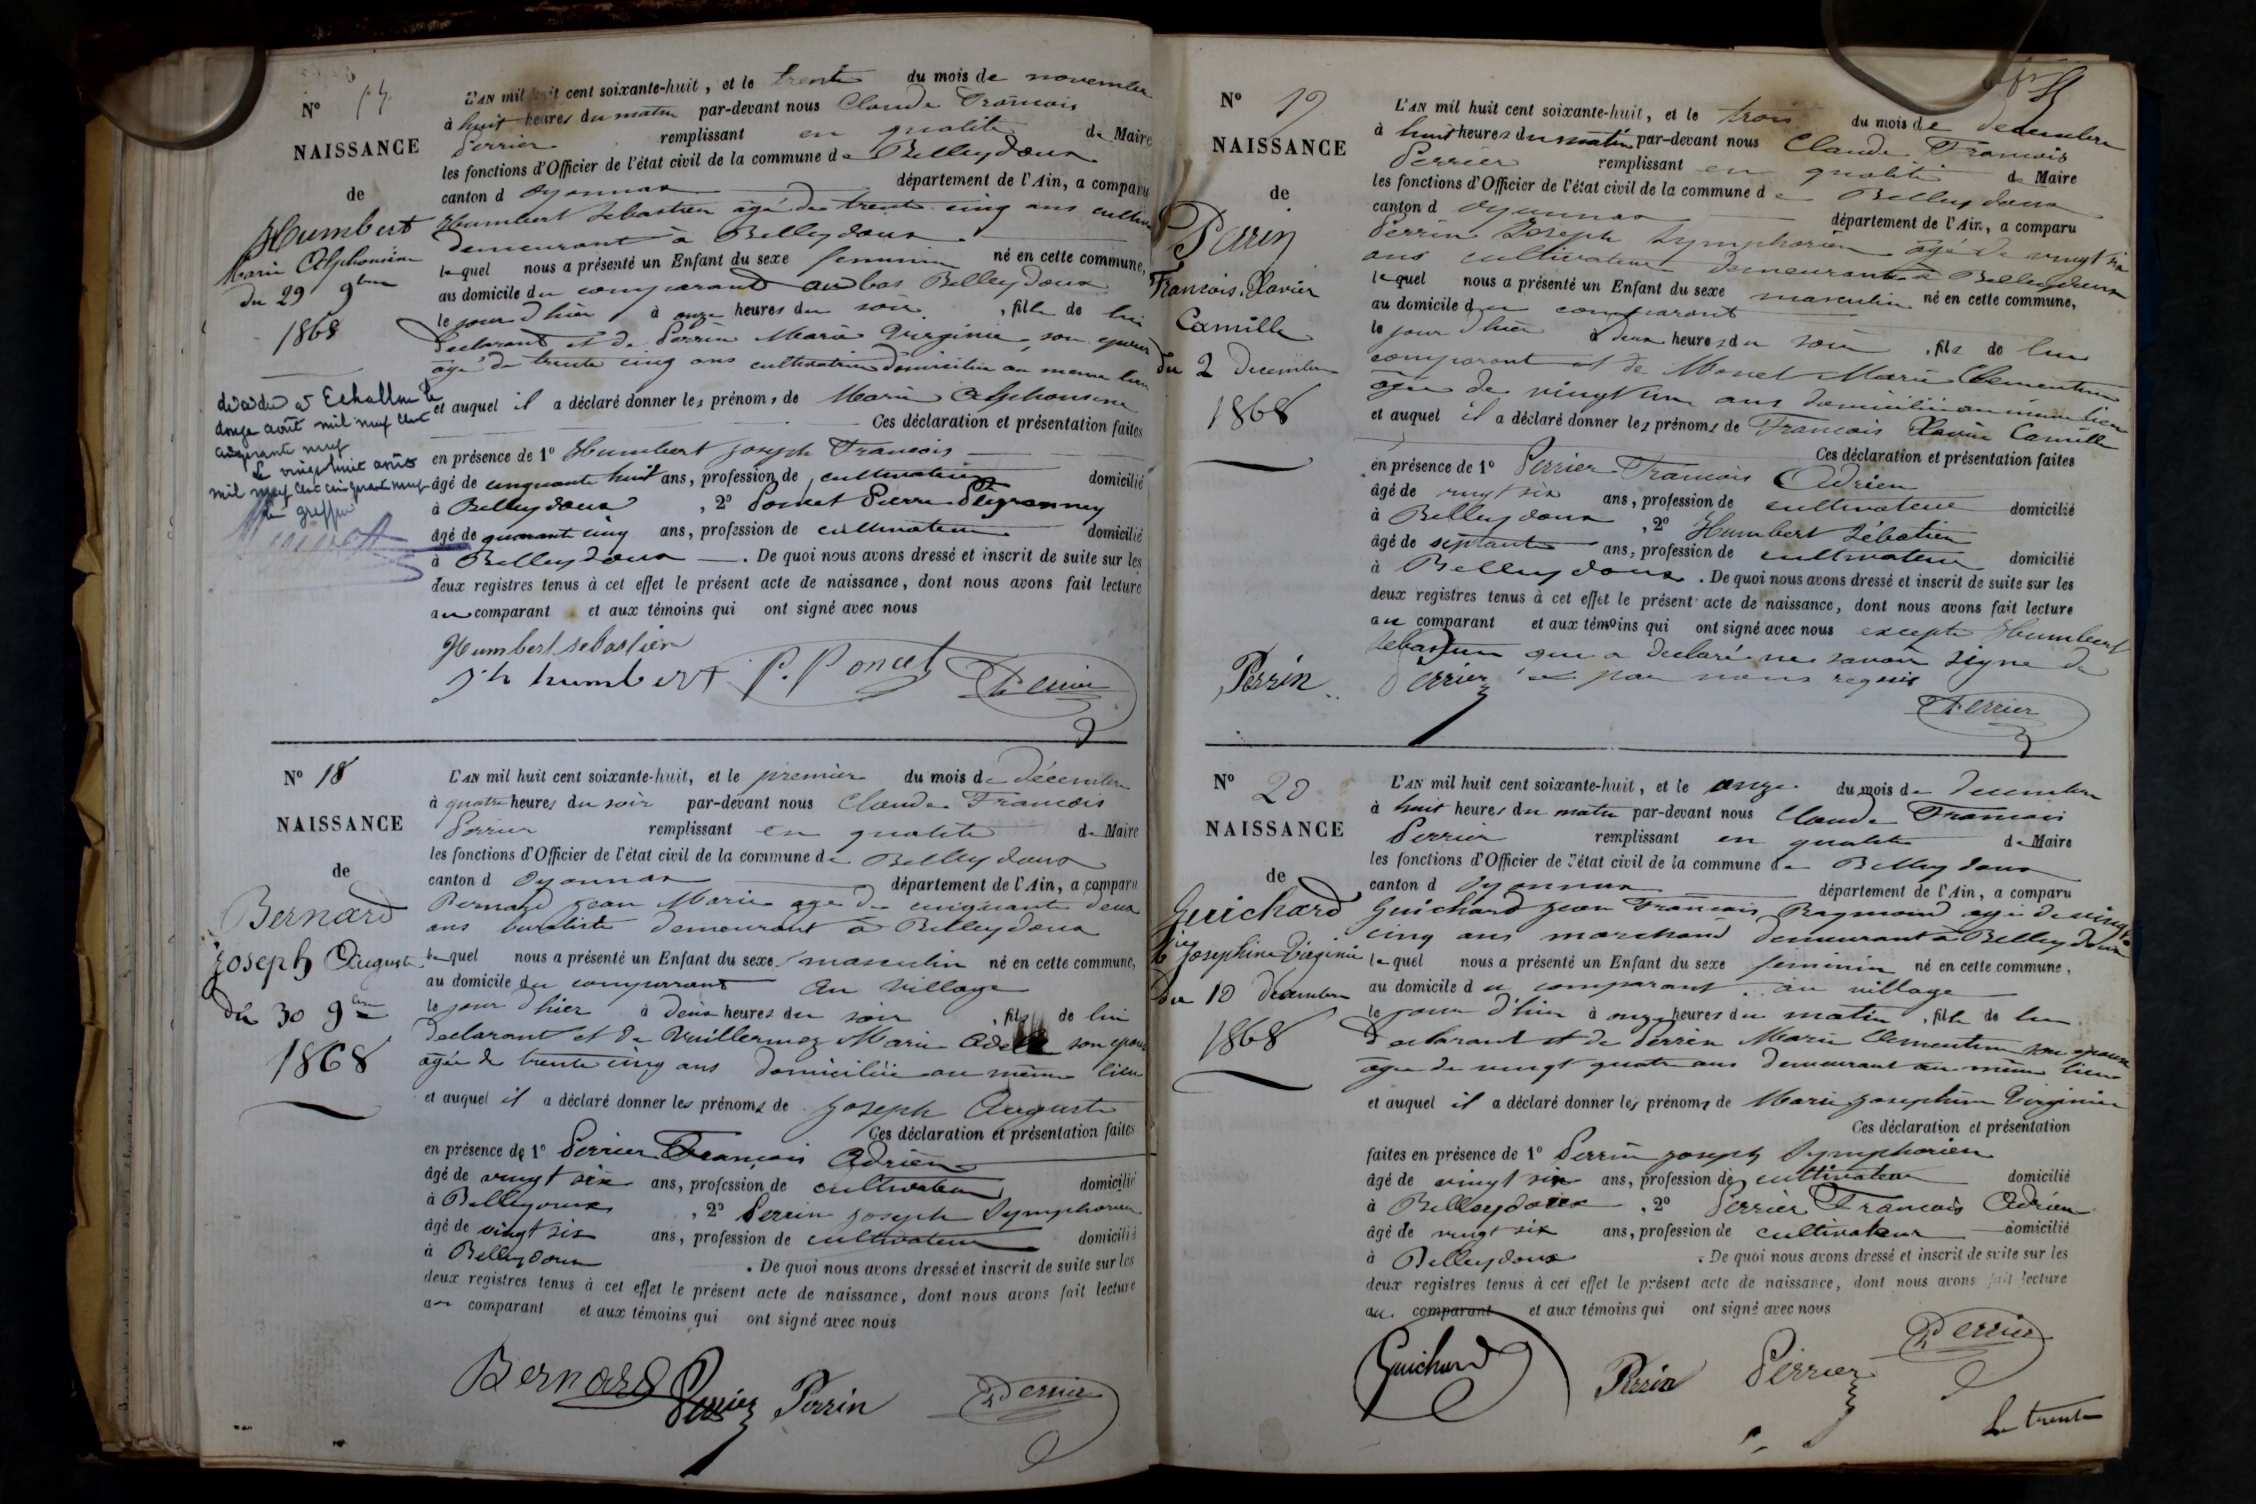 N° 17
NAISSANCE
de
Humbert
Marie Alphonsine
du 29 9bre
1868
décédée à Echallon le
douze août mil neuf cent
cinquante neuf
Le vingt huit août
mil neuf cent cinquante neuf
Le greffier
L'AN mil huit cent soixante-huit, et le trente du mois de novembre
à huit heures du matin par-devant nous Claude François
Perrier remplissant en qualité de Maire
les fonctions d'Officier de l'état civil de la commune de Belleydoux
canton d Oyonnax département de l'Ain, a comparu
Humbert Sebastien âgé de trente cinq ans cultiv
demeurant à Belleydoux
lequel nous a présenté un Enfant du sexe feminin né en cette commune,
au domicile du comparant au bas Belleydoux
le jour d'hier à onze heures du soir, fille de lui
declarant et de Perrin Marie Virginie, son epouse
age de trente cinq ans cultivatrice domiciliée au meme lieu
et auquel il a déclaré donner les prénoms de Marie Alphonsine
Ces déclaration et présentation faites
en présence de 1° Humbert Joseph François
âgé de cinquante huit ans, profession de cultivateur domicilié
à Belleydoux, 2° Poncet Pierre
âgé de quarante cinq ans, profession de cultivateur domicilié
à Belleydoux. De quoi nous avons dressé et inscrit de suite sur les
deux registres tenus à cet effet le présent acte de naissance, dont nous avons fait lecture
au comparant et aux témoins qui ont signé avec nous
Humbert sebastien
jh humbert P. Poncet Perrier
N° 18
NAISSANCE
de
Bernard
Joseph Auguste
du 30 9bre
1868
L'AN mil huit cent soixante-huit, et le premier du mois de décembre
à quatre heures du soir par-devant nous Claude François
Perrier remplissant en qualité de Maire
les fonctions d'Officier de l'état civil de la commune de Belleydoux
canton d Oyonnax département de l'Ain, a comparu
Bernard Jean Marie age de cinquante deux
ans buraliste demeurant à Belleydoux
lequel nous a présenté un Enfant du sexe masculin né en cette commune,
au domicile du comparant au village
le jour d'hier à deux heures du soir, fils de lui
declarant et de Vuillermoz Marie Adele son epouse
agée de trente cinq ans domiciliée au même lieu
et auquel il a déclaré donner les prénoms de Joseph Auguste
Ces déclaration et présentation faites
en présence de 1° Perrier François Adrien
âgé de vingt six ans, profession de cultivateur domicilié
à Belleydoux, 2° Perrin Joseph Symphorien
âgé de vingt six ans, profession de cultivateur domicilié
à Belleydoux. De quoi nous avons dressé et inscrit de suite sur les
deux registres tenus à cet effet le présent acte de naissance, dont nous avons fait lecture
au comparant et aux témoins qui ont signé avec nous
Bernard Perrier Perrin Perrier
N° 19
NAISSANCE
de
Perrin
François Xavier
Camille
du 2 Decembre
1868
L'AN mil huit cent soixante-huit, et le trois du mois de decembre
à huit heures du matin par-devant nous Claude François
Perrier remplissant en qualité de Maire
les fonctions d'Officier de l'état civil de la commune de Belleydoux
canton d Oyonnax département de l'Ain, a comparu
Perrin Joseph Symphorien âgé de vingt six
ans cultivateur demeurant à Belleydoux
lequel nous a présenté un Enfant du sexe masculin né en cette commune,
au domicile du comparant
le jour d'hier à deux heures du soir, fils de lui
comparant et de Monet Marie Clementine
agée de vingt un ans domiciliée au même lieu
et auquel il a déclaré donner les prénoms de François Xavier Camille
Ces déclaration et présentation faites
en présence de 1° Perrier François Adrien
âgé de vingt six ans, profession de cultivateur domicilié
à Belleydoux, 2° Humbert Sébastien
âgé de septante ans, profession de cultivateur domicilié
à Belleydoux. De quoi nous avons dressé et inscrit de suite sur les
deux registres tenus à cet effet le présent acte de naissance, dont nous avons fait lecture
au comparant et aux témoins qui ont signé avec nous excepté Humbert
Sebastien qui a declaré ne savoir signe de
ce par nous requis
Perrin Perrier
Perrier
N° 20
NAISSANCE
de
Guichard
Mie Josephine Virginie
du 10 decembre
1868
L'AN mil huit cent soixante-huit, et le onze du mois de decembre
à huit heures du matin par-devant nous Claude François
Perrier remplissant en qualité de Maire
les fonctions d'Officier de l'état civil de la commune de Belleydoux
canton d Oyonnax département de l'Ain, a comparu
Guichard Jean François Raymond agé de vingt
cinq ans marchand demeurant à Belleydoux
lequel nous a présenté un Enfant du sexe feminin né en cette commune,
au domicile du comparant au village
le jour d'hier à onze heures du matin, fille de lui
declarant et de Perrin Marie Clementine son epouse
agée de vingt quatre ans demeurant au même lieu
et auquel il a déclaré donner les prénoms de Marie Josephine Virginie
Ces déclaration et présentation
faites en présence de 1° Perrin Joseph Symphorien
âgé de vingt six ans, profession de cultivateur domicilié
à Belleydoux, 2° Perrier François Adrien
âgé de vingt six ans, profession de cultivateur domicilié
à Belleydoux. De quoi nous avons dressé et inscrit de suite sur les
deux registres tenus à cet effet le présent acte de naissance, dont nous avons fait lecture
au comparant et aux témoins qui ont signé avec nous
Guichard Perrin Perrier Perrier
Le trente